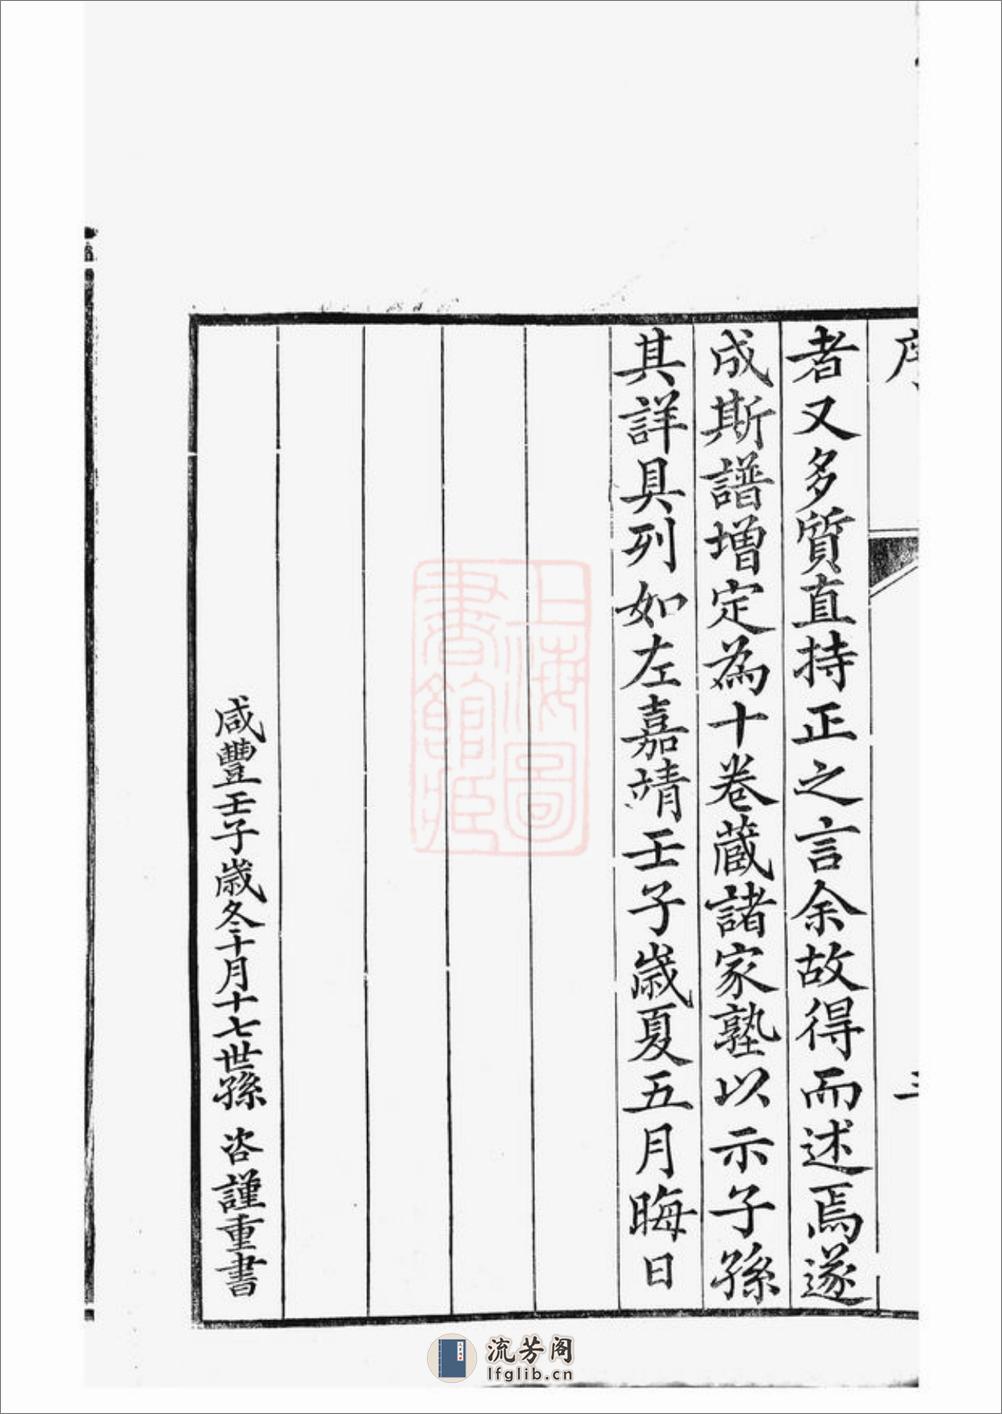 序
三
者又多質直持正之言余故得而述焉遂
成斯譜增定為十卷藏諸家塾以示子孫
其詳具列如左嘉靖壬子歲夏五月晦日
咸豐壬子歲冬十月十七世孫 咨謹重書
上海圖書館藏
流芳阁
lfglib.cn